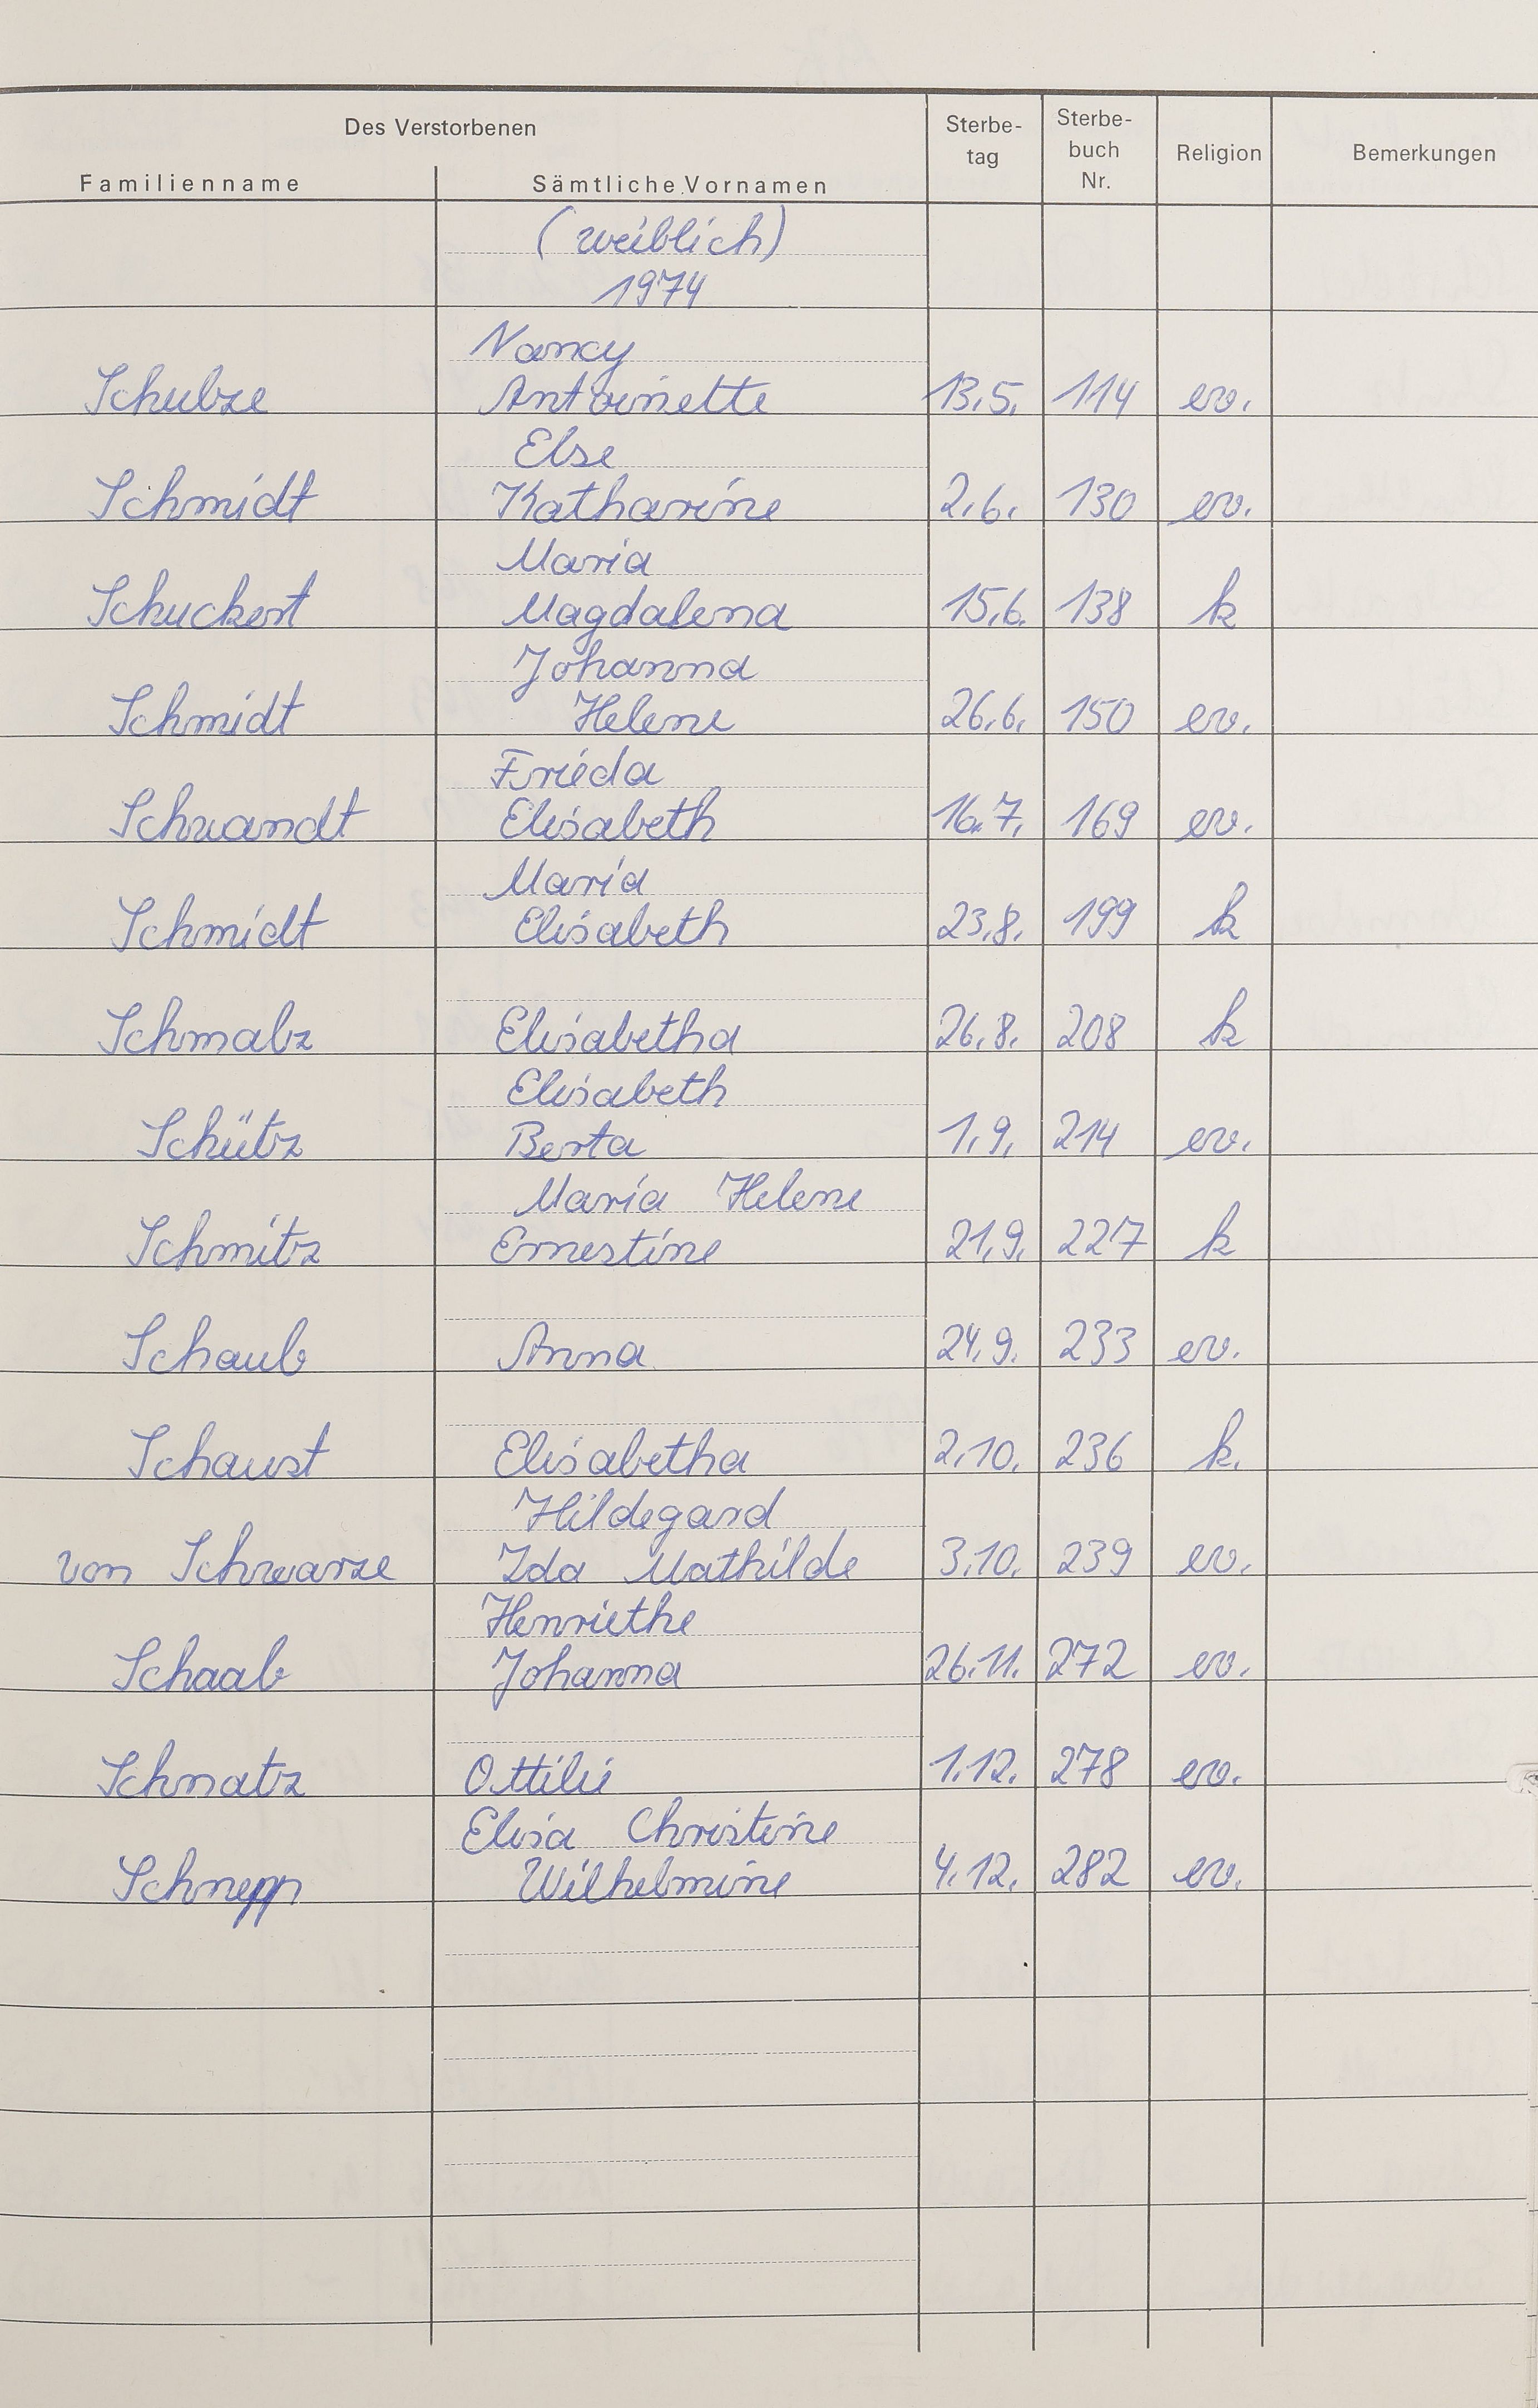 Des Verstorbenen
Familienname Sämtliche Vornamen Sterbe-
tag Sterbe-
buch
Nr. Religion Bemerkungen
(weiblich)
1974
Nancy
Schulze Antoinette 13.5. 114 ev.
Else
Schmidt Katharine 2.6. 130 ev.
Maria
Schuckert Magdalena 15.6. 138 k
Johanna
Schmidt Helene 26.6. 150 ev.
Frieda
Schwandt Elisabeth 16.7. 169 ev.
Maria
Schmidt Elisabeth 23.8. 199 k
Schmalz Elisabetha 26.8. 208 k
Elisabeth
Schütz Berta 1.9. 214 ev.
Maria Helene
Schmitz Ernestine 21.9. 227 k
Schaub Anna 24.9. 233 ev.
Schaust Elisabetha 2.10. 236 k.
Hildegard
von Schwarze Ida Mathilde 3.10. 239 ev.
Henriethe
Schaab Johanna 26.11. 272 ev.
Schnatz Ottilie 1.12. 278 ev.
Elisa Christine
Schnepp Wilhelmine 4.12. 282 ev.